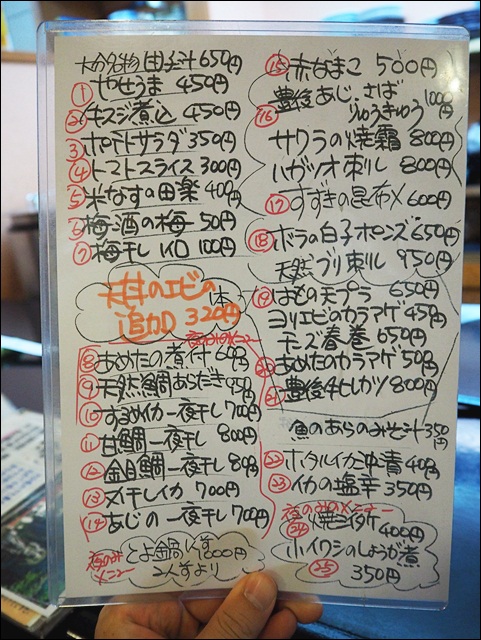 大分名物 団子汁 650円
① やせうま 450円
② 牛スジ煮込 450円
③ ポテトサラダ 350円
④ トマトスライス 300円
⑤ 米なすの田楽 400円
⑥ 梅酒の梅 50円
⑦ 梅干し 1コ 100円
天丼のエビの
追加 1本 320円
夜のみメニュー
⑧ あめたの煮付 600円
⑨ 天然鯛あらだき 950円
⑩ するめイカ一夜干し 700円
⑪ 甘鯛一夜干し 800円
⑫ 金目鯛一夜干し 800円
⑬ 丸干しイカ 700円
⑭ あじの一夜干し 700円
夜のみメニュー
とよ鍋 1人前 600円
2人前より
⑮ 赤なまこ 500円
⑯ 豊後あじ、さば
りゅうきゅう
サワラの焼霜 800円
ハガツオ刺し 800円
⑰ すずきの昆布〆 600円
⑱ ボラの白子ポンズ 650円
天然ブリ刺し 950円
⑲ はもの天プラ 650円
ヨリエビのカラアゲ 450円
チーズ春巻 650円
⑳ あめたのカラアゲ
㉑ 豊後牛ヒレカツ 800円
魚のあらのみそ汁 350円
㉒ ホタルイカ沖漬 400円
㉓ イカの塩辛 350円
夜のみメニュー
㉔ 焼シイタケ 400円
小イワシのしょうが煮
㉕ 350円